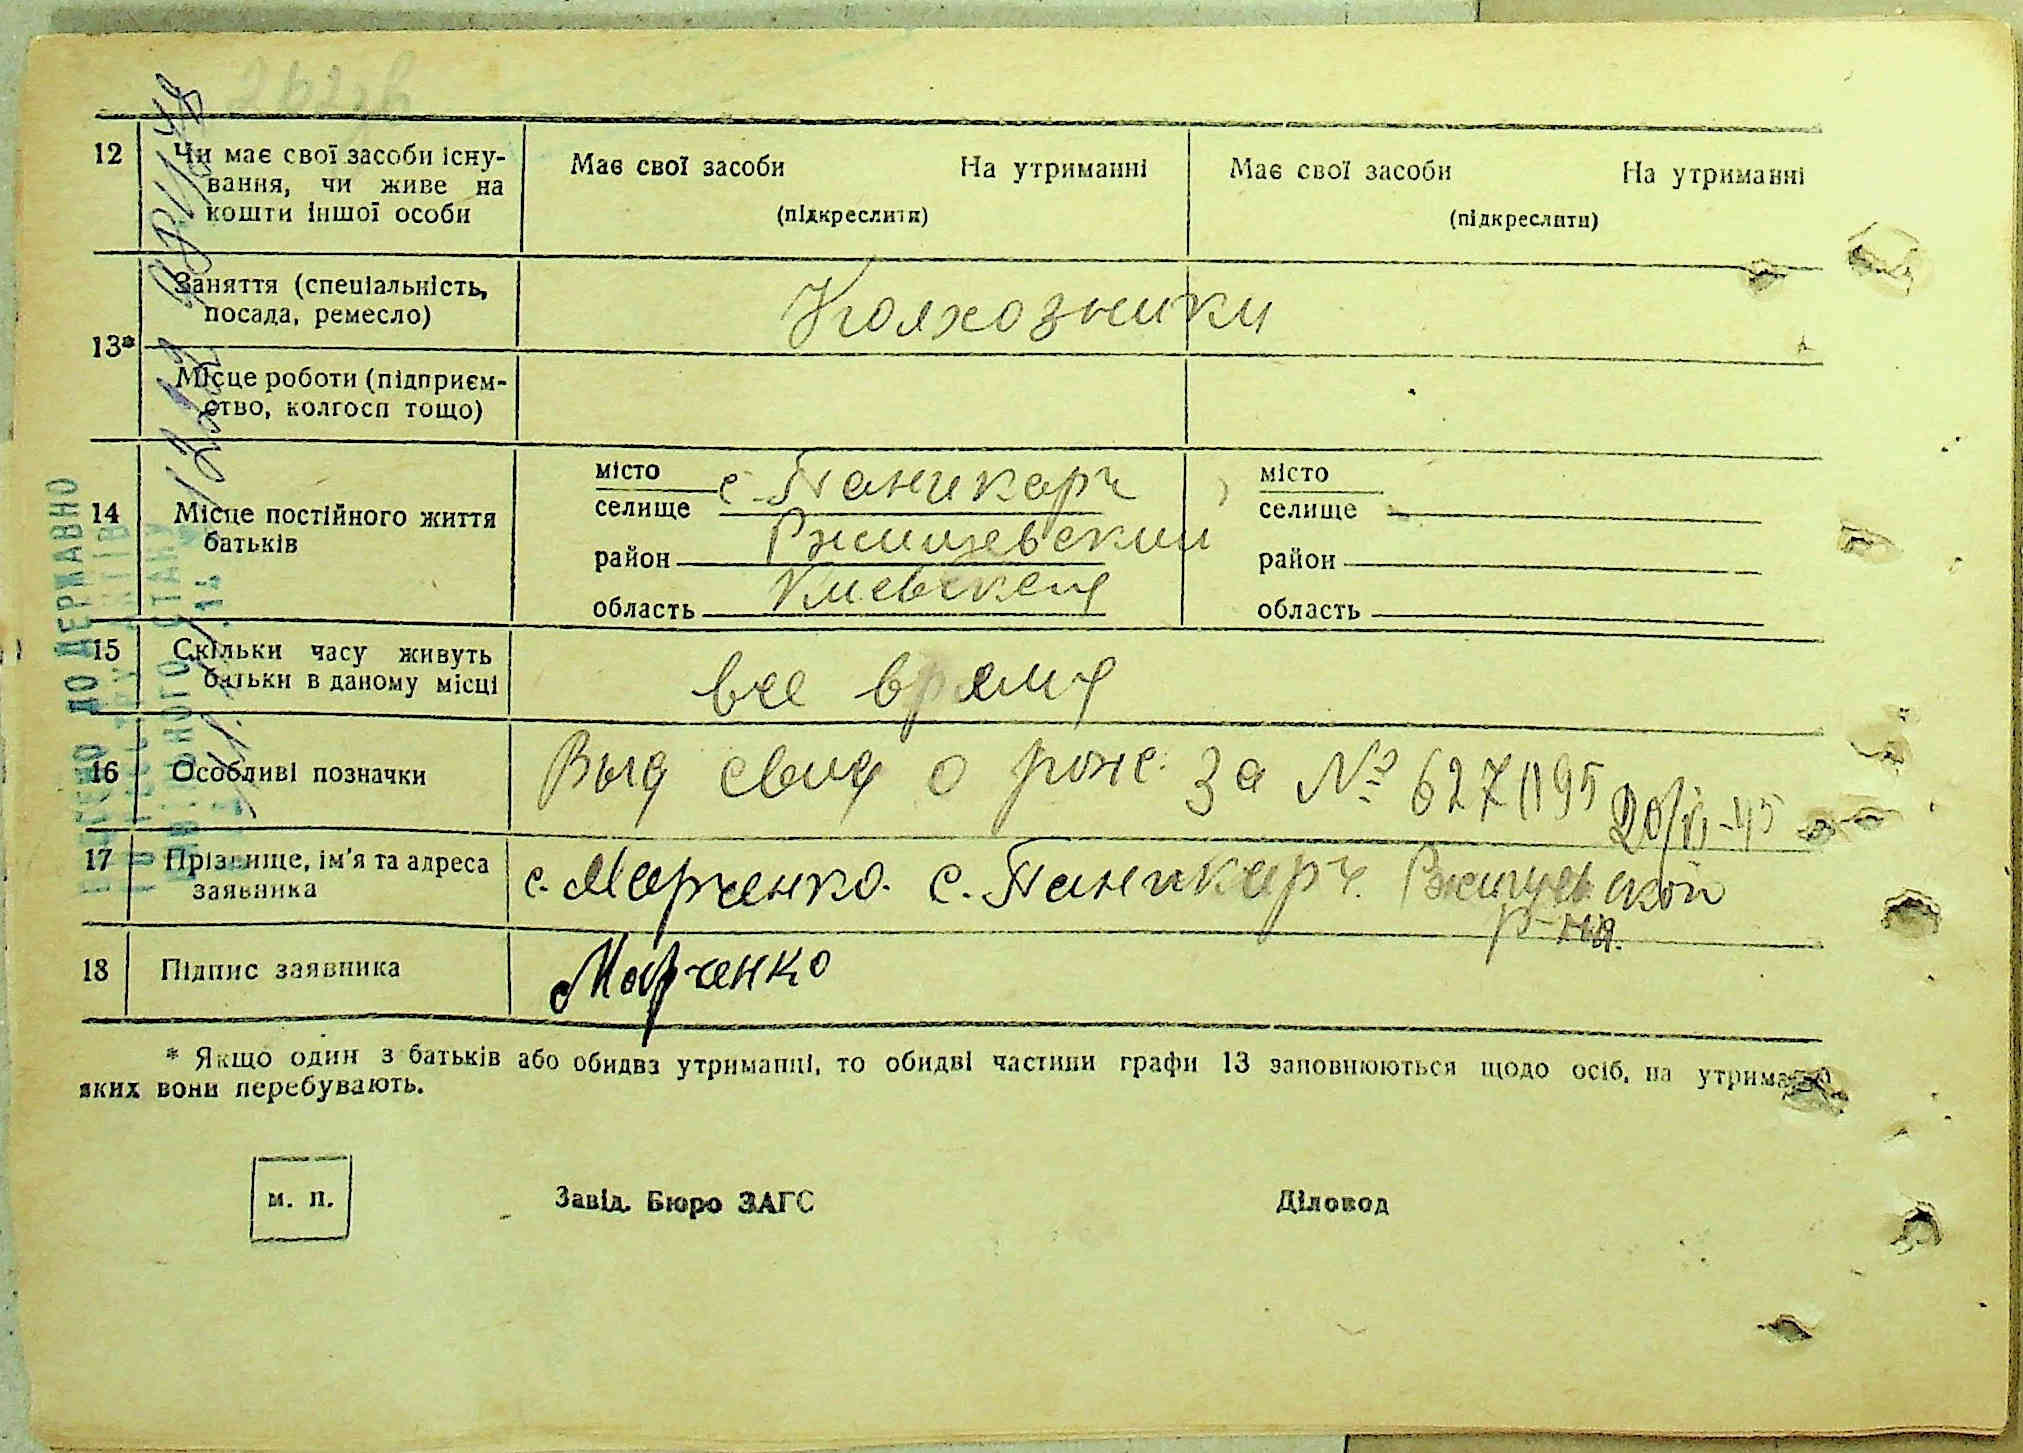 12 Чи має свої засоби існу-
вання, чи живе на
кошти іншої особи
Має свої засоби На утриманні
(підкреслити)
Має свої засоби На утриманні
(підкреслити)
13*
Заняття (спеціальність,
посада, ремесло)
Колхозники
Місце роботи (підприєм-
ство, колгосп тощо)
14 Місце постійного життя
батьків
місто
селище
с. Паникарч
район Ржищевский
область Киевская
місто
селище
район
область
15 Скільки часу живуть
батьки в даному місці
все время
16 Особливі позначки
Выд свид о рож. за № 627 20/VI-45
17 Прізвище, ім'я та адреса
заявника
с. Марченко. с. Паникарч. Ржищевской
р-на.
18 Підпис заявника
Марченко
* Якщо один з батьків або обидва утриманці, то обидві частини графи 13 заповнюються щодо осіб, на
яких вони перебувають.
м. п.
Завід. Бюро ЗАГС Діловод
ДО ДЕРЖАВНО
СТАНУ